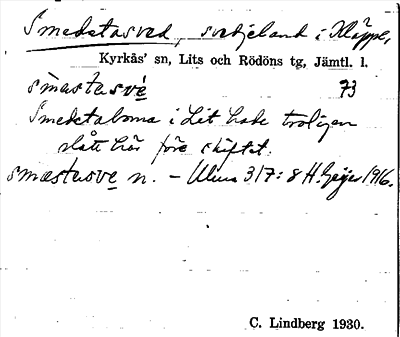 Smedstasved, svedjeland i Kläppe,
Kyrkås' sn, Lits och Rödöns tg, Jämtl. l.
smæstasvé 73
Smedstaborna i Lit hade troligen
slått här före skiftet.
smæstasve n. – Ulma 317:8 H. Geijer 1916.
C. Lindberg 1930.